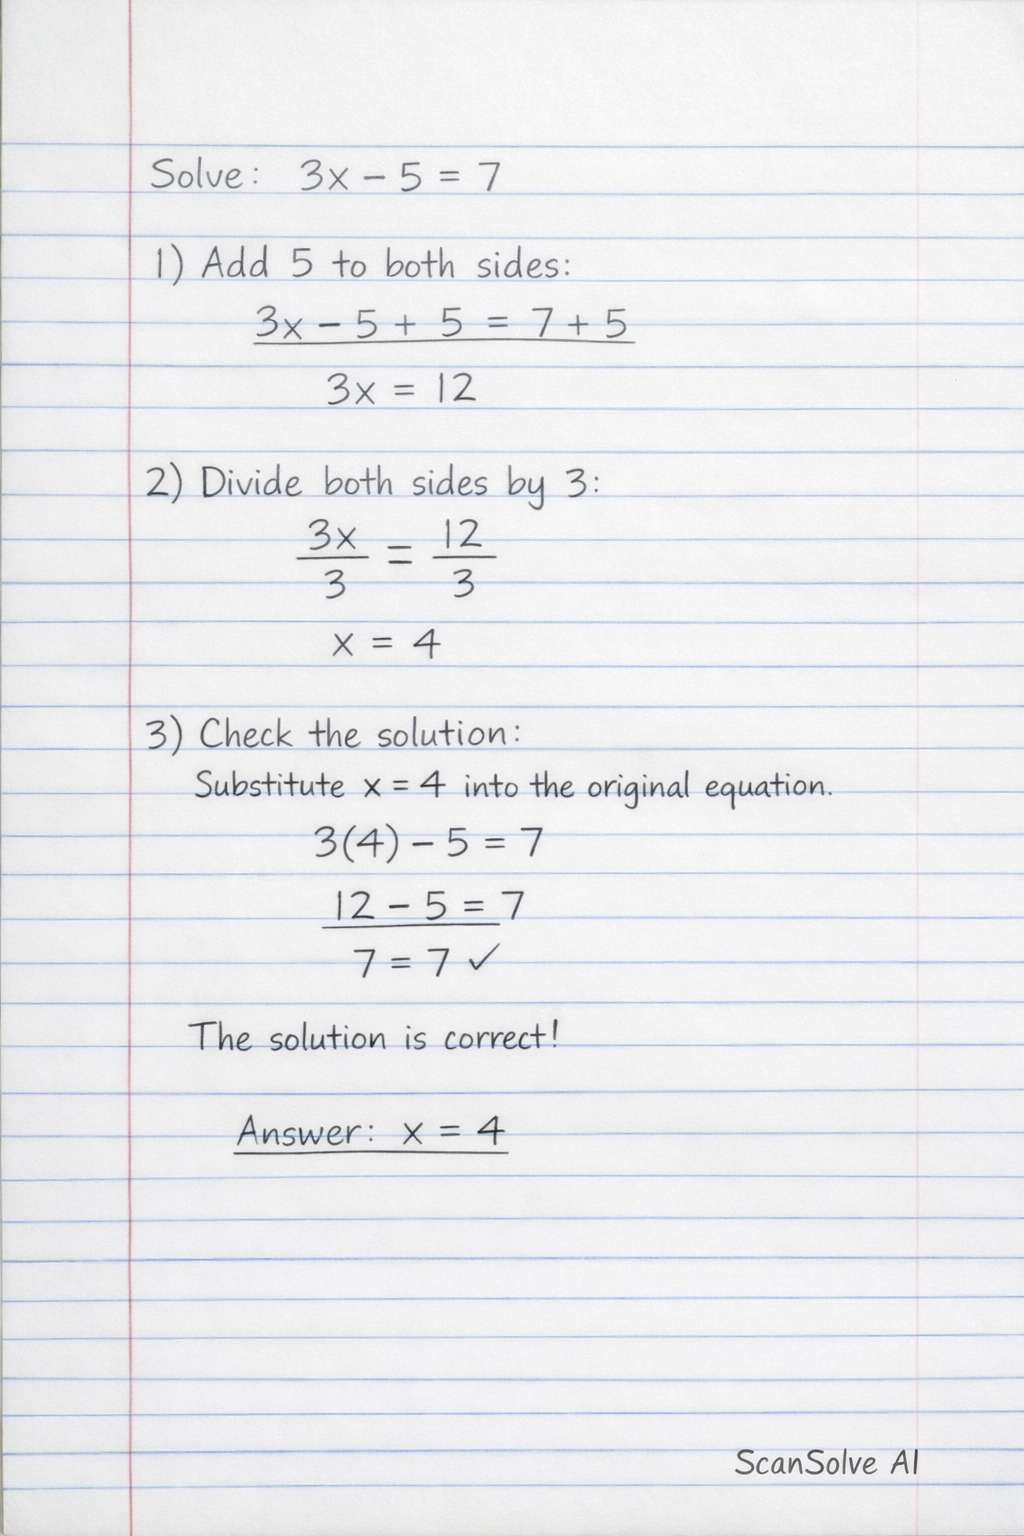 Solve: 3x - 5 = 7
1) Add 5 to both sides:
3x - 5 + 5 = 7 + 5
3x = 12
2) Divide both sides by 3:
3x/3 = 12/3
x = 4
3) Check the solution:
Substitute x = 4 into the original equation.
3(4) - 5 = 7
12 - 5 = 7
7 = 7 ✓
The solution is correct!
Answer: x = 4
ScanSolve AI